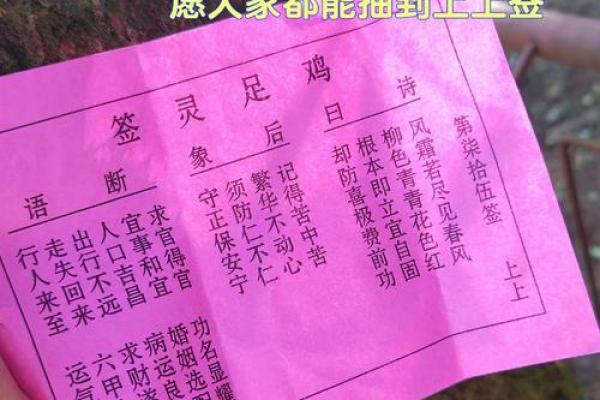 愿大家都能抽到上上签
鸡足灵签
第柒拾伍签 上上
诗日
风霜若尽见春风
柳色青青花色红
根本即立宜自固
却防喜极费前功
后象
记得苦中苦
繁华不动心
须防仁不仁
守正保安宁
断语
求官得官
宜事和宜
人口吉昌
出行不远
走失回来
行人来至
功名显耀
婚姻选
病运良
求财遂
六甲
运气